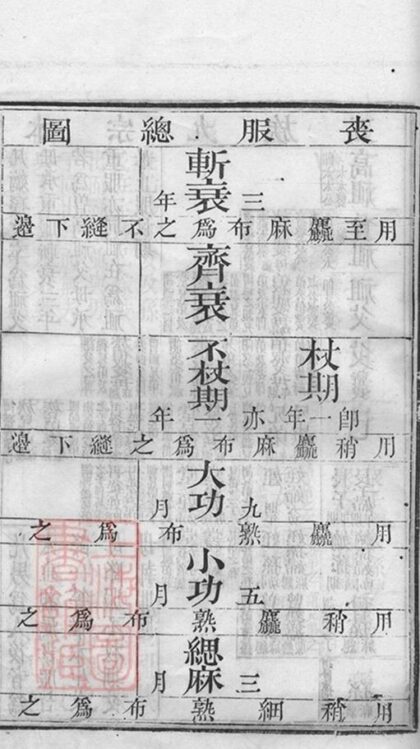 喪服總圖
斬衰
三年
用至麤麻布爲之不縫下邊
齊衰
杖期
不杖期
卽一年亦一年
用稍麤麻布爲之縫下邊
大功
九月
用麤熟布爲之
小功
五月
用稍麤熟布爲之
緦麻
三月
用稍細熟布爲之